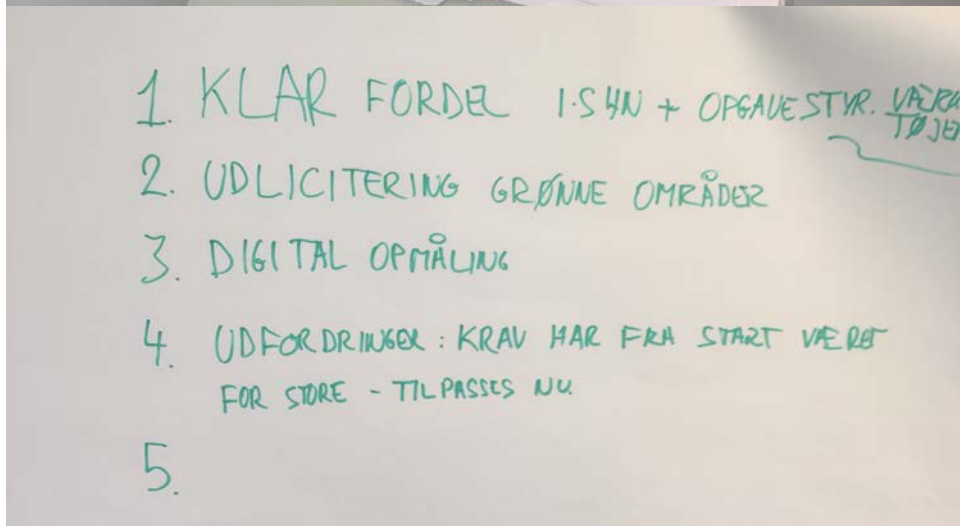 1. KLAR FORDEL + OPGAVESTYR.
2. UDLICITERING GRØNNE OMRÅDER
3. DIGITAL OPMÅLING
4. UDFORDRINGER: KRAV HAR FRA START VÆRET
FOR STORE - TILPASSES NU.
5.